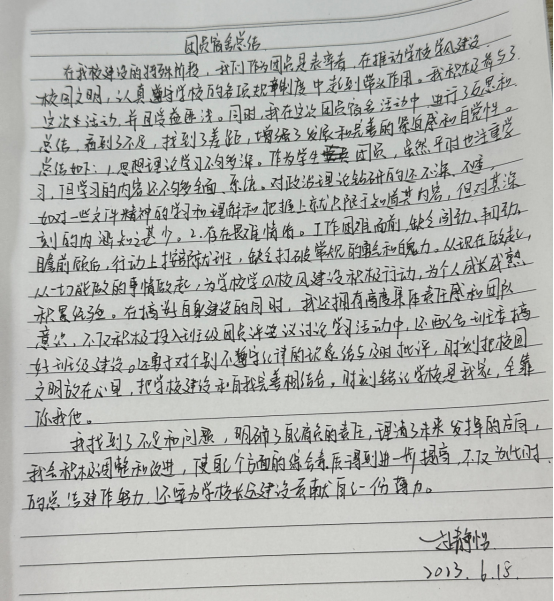 团员宿舍总结
在我校建设的特殊阶段，我们作为团员是表率者，在推动学校学风建设
校园文明，认真遵守学校的各项规章制度中起到带头作用。我积极参与了
这次活动，并且受益匪浅。同时，我在这次团员宿舍活动中，进行了反思和
总结，看到了不足，找到了差距，增强了发展和完善的紧迫感和自觉性。
总结如下：1.思想理论学习不够多深。作为学生团员，虽然平时也注重学
习，但学习的内容还不够全面、系统。对政治理论钻研的还不深、不透
如对一些文件精神的学习和理解和把握上就只限于知道其内容，但对其深
刻的内涵知之甚少。2.存在畏难情绪。工作困难面前，缺乏闯劲、韧劲。
瞻前顾后，行动上按部就班，缺乏打破常规的勇气和魄力。从现在做起，
从一切能做的事情做起，为学校学风校风建设积极行动，为个人成长成熟
积累经验。在搞好自身建设的同时，我还拥有高度集体责任感和团队
意识，不仅积极投入到班级团员评议讨论学习活动中，还配合班主任搞
好班级建设。还敢于对个别不遵守纪律的现象给与及时批评，时刻把校园
文明放在心里，把学校建设和自我完善相结合，时刻铭记学校是我家，全靠
你我他。
我找到了不足和问题，明确了自己肩负的责任，理清了未来发挥的方向，
我会积极调整和改进，使自己个方面的综合素质得到进一步提高，不仅为此时
的总结建作努力，还要为学校长久建设贡献自己一份薄力。
赵静怡
2023.6.18.